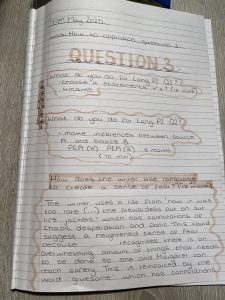 13th May 2025
How to approach question 3
QUESTION 3
What do you do for Lang P2 Q1?
choose 4 statements "x's" (15 mins)
4 marks
What do you do for Lang P2 Q2?
make inferences between source
A and source B
PEA (A) PEA (B) 8 marks
(10 min)
How does the writer use language
to create a sense of fear? (12 marks)
The writer uses a list from 'now it was
too late (...) the stewardess put on our
life jackets' which has connotations of
chaos, desperation and panic. This could
suggest a heightened sense of fear
because recognises there is an
overwhelming amount of things that needs
to be done so she and Margaret can
reach safety. This is reinforced by the
word 'gruesome' which has connotations